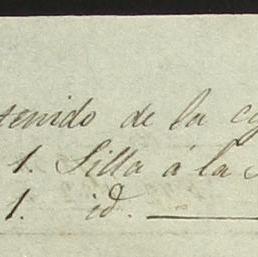 tenido de la
1. Silla á la
1. id.